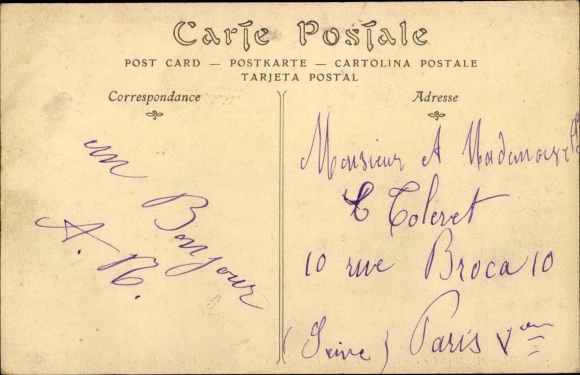 Carte Postale
POST CARD — POSTKARTE — CARTOLINA POSTALE
TARJETA POSTAL
Correspondance
Adresse
un Bonjour
A. R.
Monsieur A Mademoiselle
Toleret
10 rue Broca 10
(Seine) Paris Vem